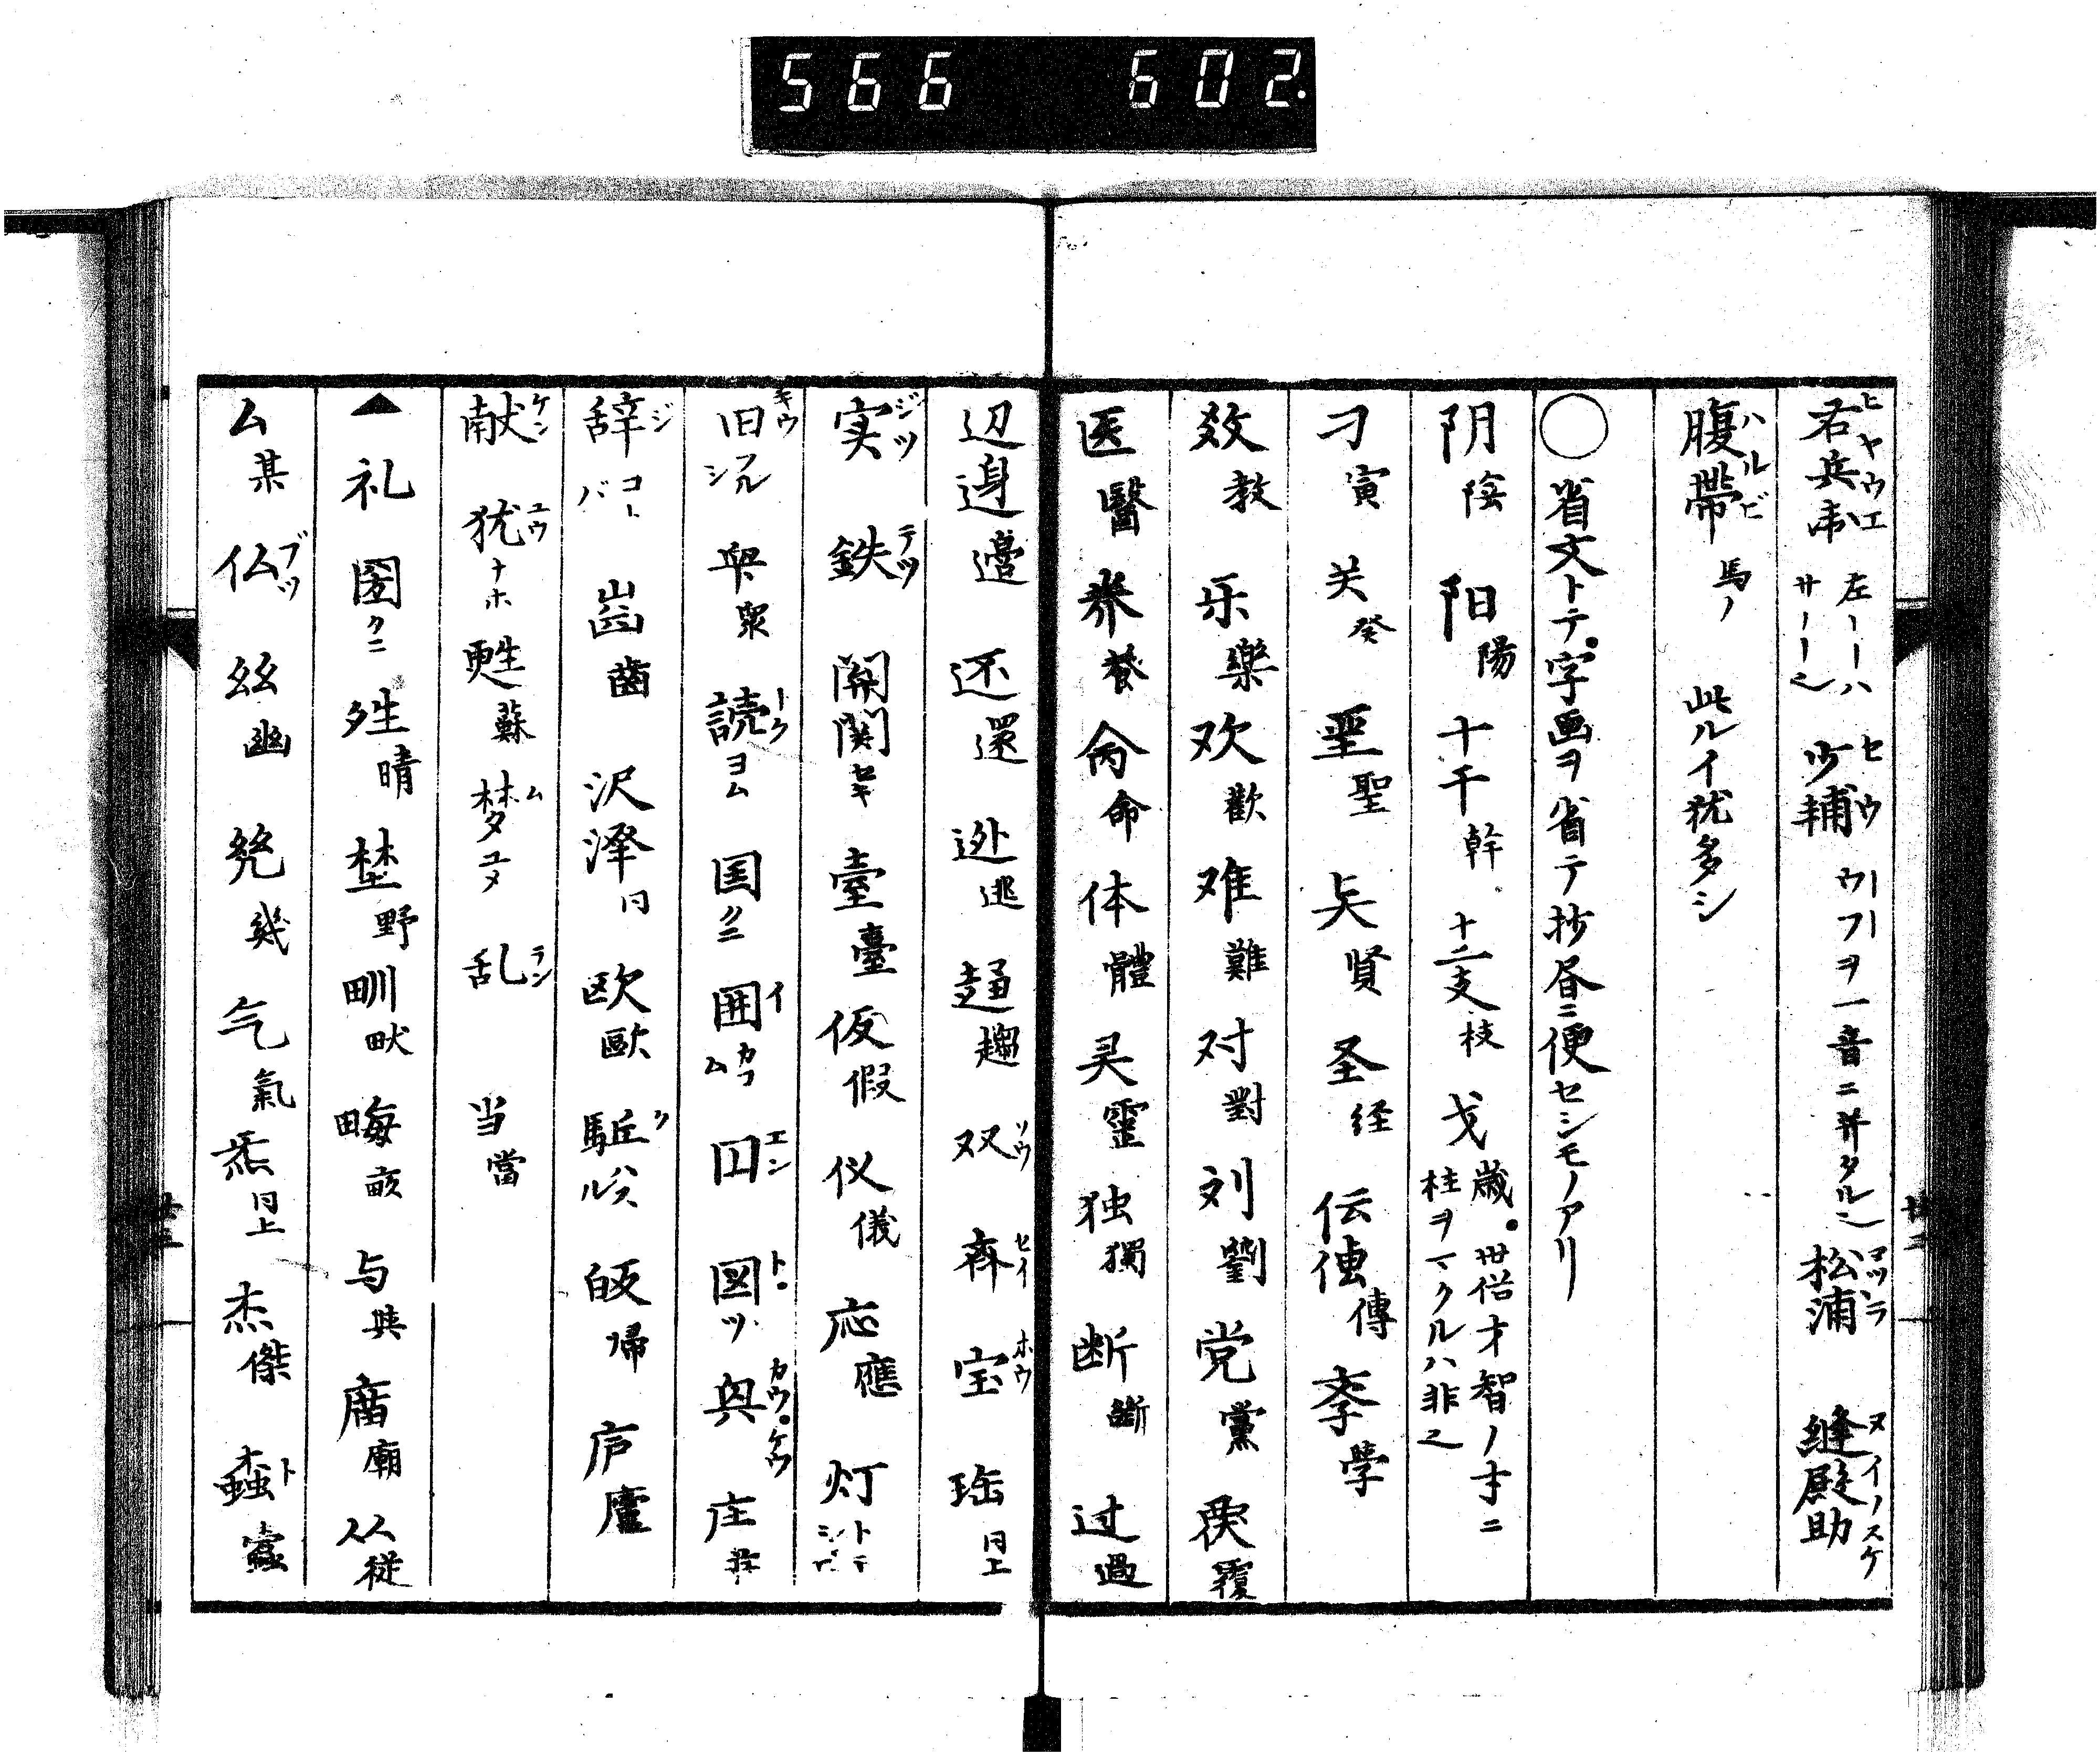 566 602.
右兵衛 ヒヤウエ 左ーーハ サーー之 少輔 セウ ウーフーヲ一音ニ并タル之 松浦 マツラ 縫殿助 ヌイノスケ
腹帶 ハルビ 馬ノ 此ルイ犹多シ
○省文トテ字画ヲ省テ抄昼ニ便セシモノアリ
阴 陰 阳 陽 十干 幹 十二支 枝 戈 歳 世俗才智ノ才ニ 柱ヲマクルハ非之
刁 寅 关 癸 𦔻 聖 㒵 賢 圣 経 伝 傳 斈 學
效 教 乐 樂 欢 歡 难 難 对 對 刘 劉 党 黨 覆
医 醫 养 養 肏 命 体 體 灵 靈 独 獨 断 斷 过 過
辺 邉 邊 还 還 迯 逃 趋 趨 双 ソウ 斉 セイ 宝 ホウ 珤 同上
実 ジツ 鉄 テツ 開 関 セキ 臺 臺 仮 假 仪 儀 応 應 灯
旧 キウ フルシ 衆 読 ーク ヨム 国 クニ 囲 イ カコム 円 エン 図 ト ツ 興 カウ ケウ 庄 莊
辞 ジ コトバ 歯 齒 沢 澤 同 欧 歐 駈 ク ハスル 皈 帰 庐 廬
献 ケン 犹 ユウ ナホ 甦 蘇 梦 ム ユメ 乱 ラン 当 當
▲ 礼 圀 クニ 夝 晴 埜 野 甽 畎 畮 畝 与 與 庿 廟 从 從
厶 某 仏 ブツ 𢆶 幽 㡬 幾 气 氣 炁 同上 杰 傑 蠧 ト 蠹